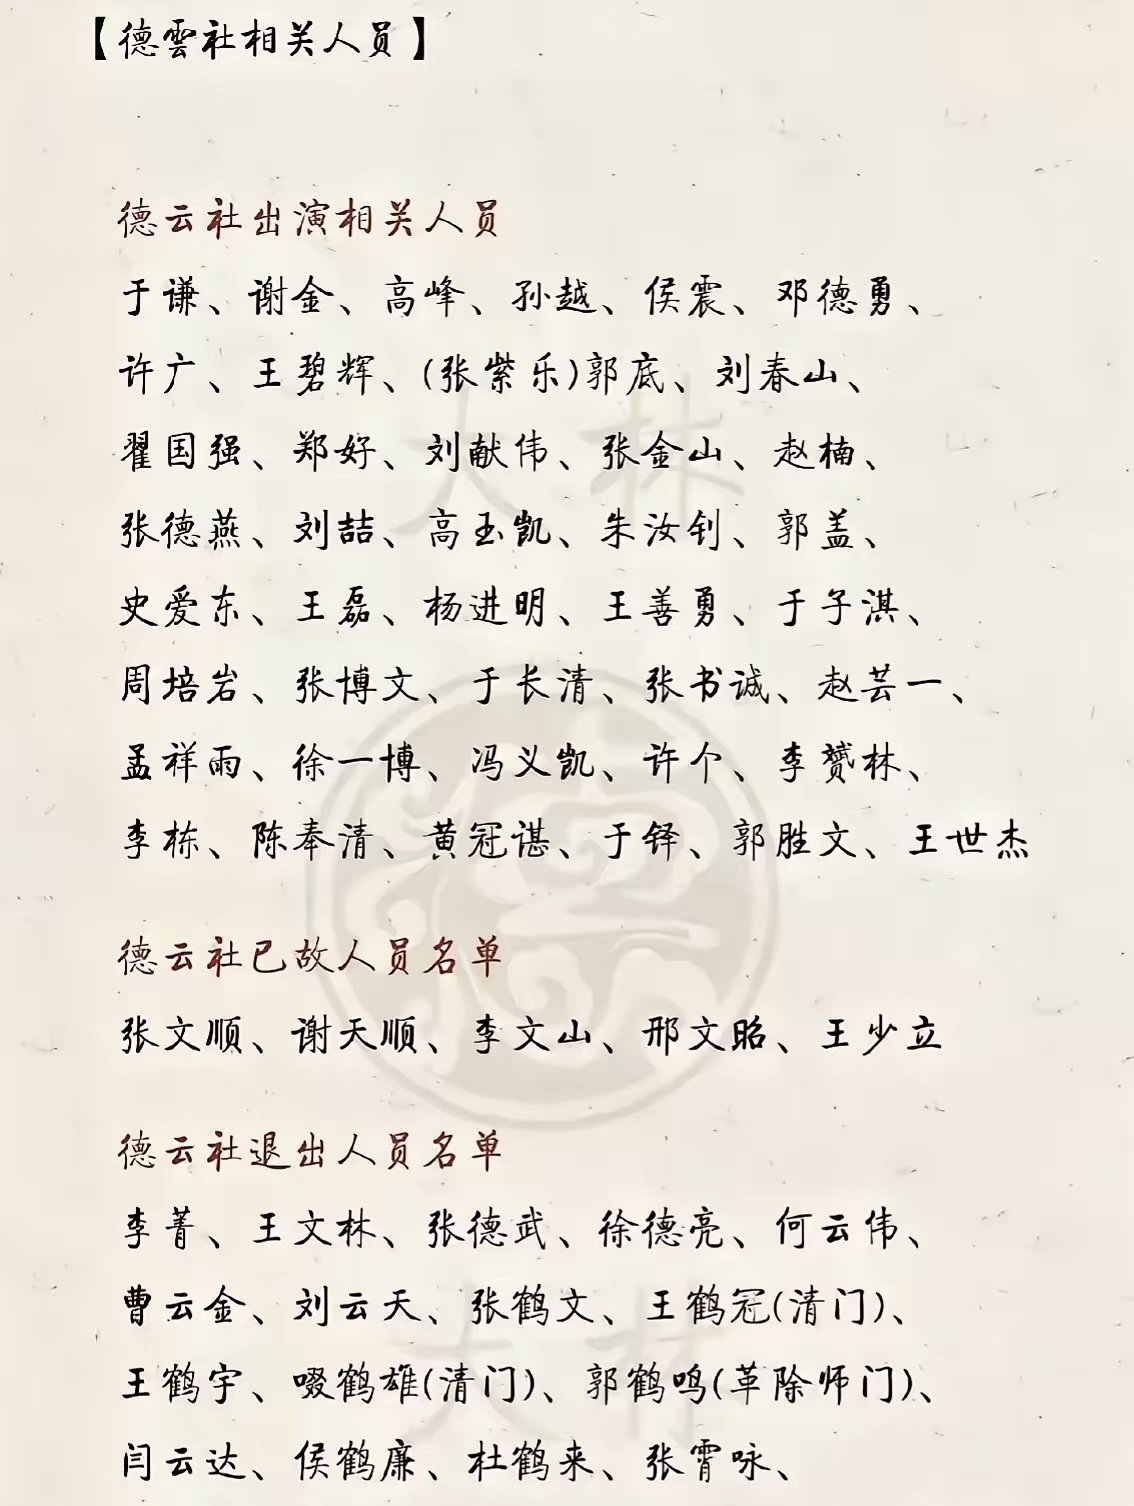 【德雲社相关人员】
德云社出演相关人员
于谦、谢金、高峰、孙越、侯震、邓德勇、
许广、王碧辉、(张紫乐)郭底、刘春山、
翟国强、郑好、刘献伟、张金山、赵楠、
张德燕、刘喆、高玉凯、朱汝钊、郭盖、
史爱东、王磊、杨进明、王善勇、于子淇、
周培岩、张博文、于长清、张书诚、赵芸一、
孟祥雨、徐一博、冯义凯、许个、李赟林、
李栋、陈奉清、黄冠谌、于铎、郭胜文、王世杰
德云社已故人员名单
张文顺、谢天顺、李文山、邢文昭、王少立
德云社退出人员名单
李菁、王文林、张德武、徐德亮、何云伟、
曹云金、刘云天、张鹤文、王鹤冠(清门)、
王鹤宇、啜鹤雄(清门)、郭鹤鸣(革除师门)、
闫云达、侯鹤廉、杜鹤来、张霄咏、
大林
大林